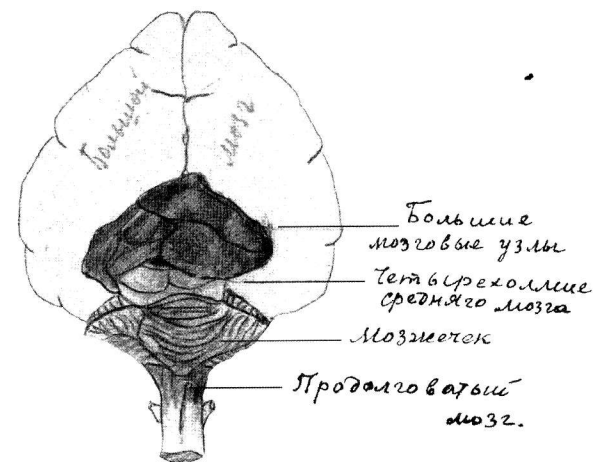 Большой
мозг
Большие
мозговые узлы
Четырехолмие
средняго мозга
Мозжечек
Продолговатый
мозг.